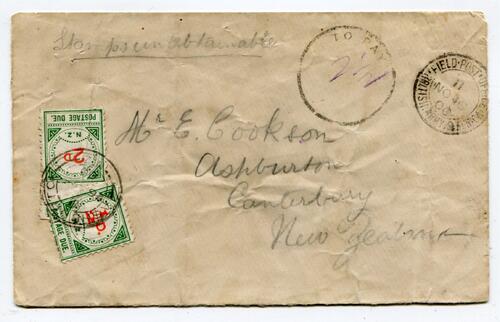 Stamps unobtainable
TO PAY
2½
FIELD · POST OFFICE
BRITISH
11
NO
00
POSTAGE DUE.
N.Z.
2D
Mr E. Cookson
Ashburton
Canterbury
New Zealand
½D.
N.Z.
POSTAGE DUE.